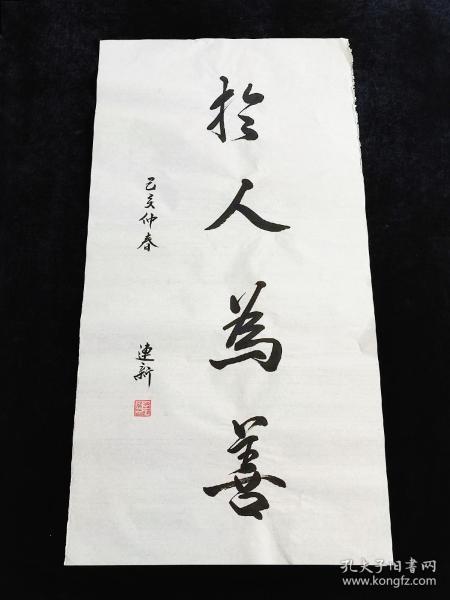 於人為善
己亥仲春
連新
孔夫子旧书网
www.kongfz.com